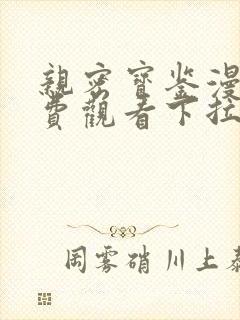 親密寶鉴漫
费觀看下拉
岡雾硝川上泰